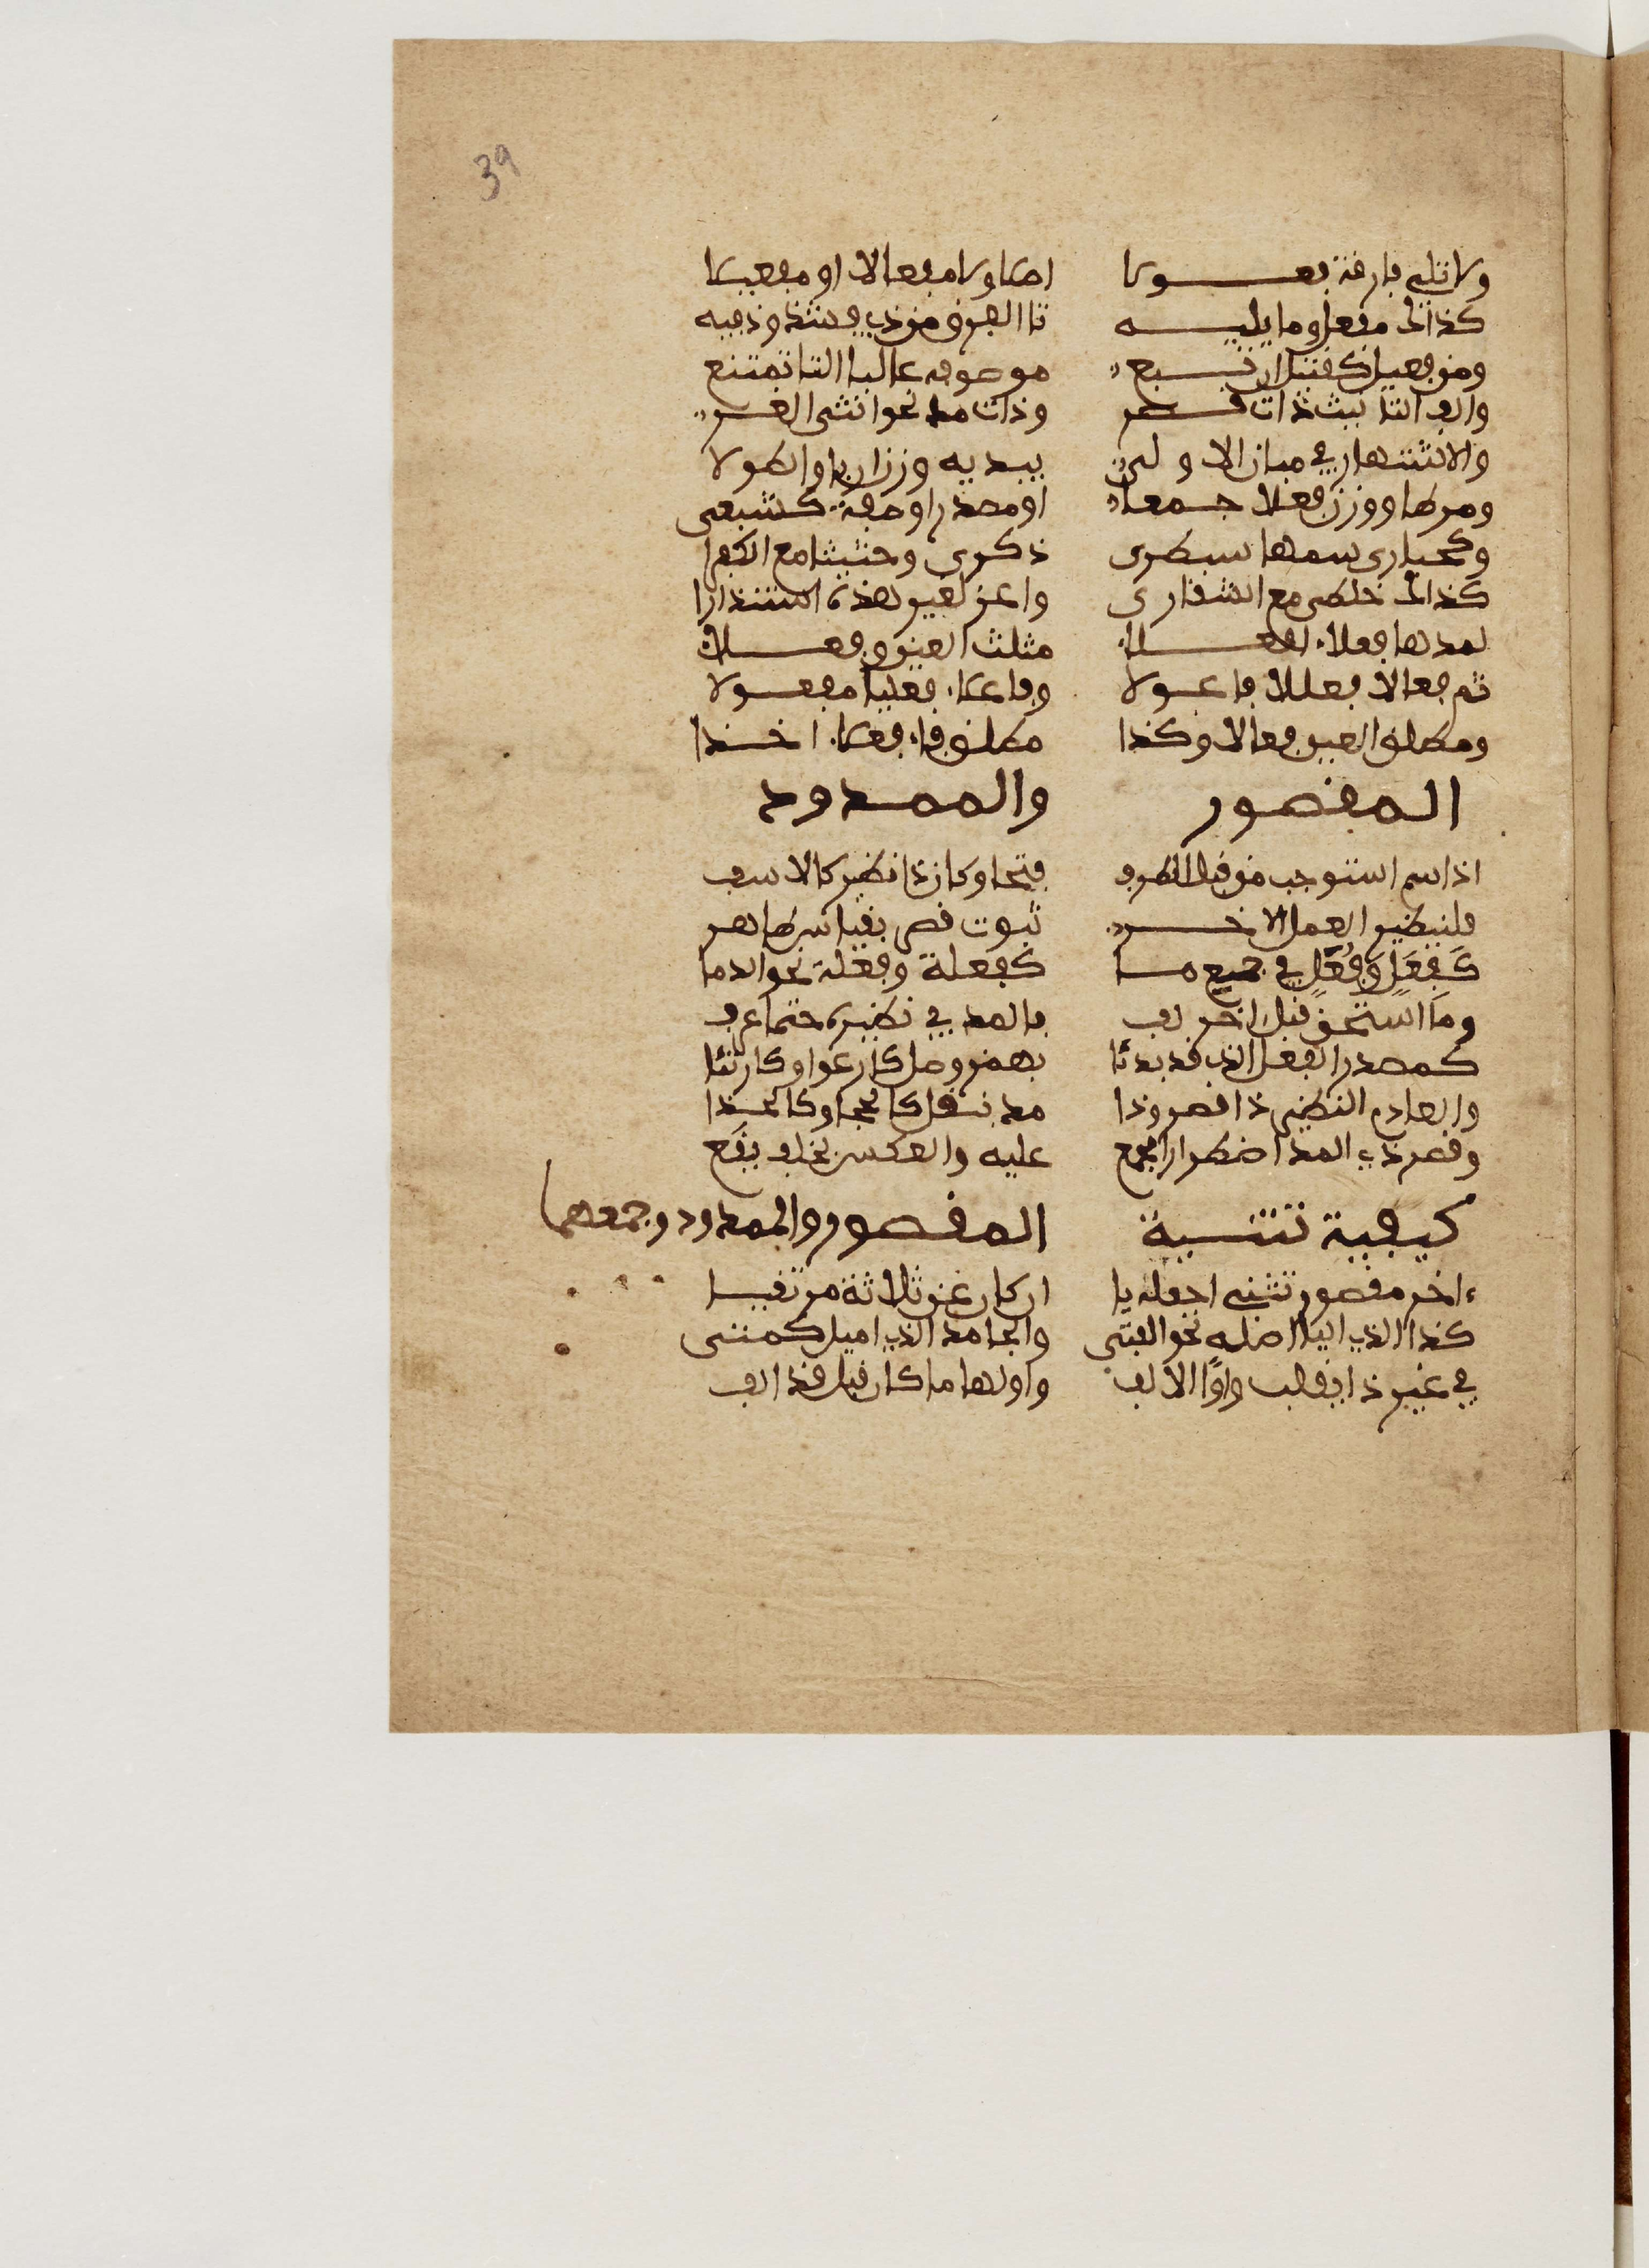 39
ولا تلي فارقة فعولا اصلا ولا مفعالا او مفعيلا
كذاك مفعل وما يليه تا الفرق من ذي فشذوذ فيه
ومن فعيل كقتيل ان تبع موصوفه غالبا التا تمتنع
والف التانيث ذات قصر وذات مد نحو انثى الغر
والاشتهار في مبان الاولى يبديه وزن اربى والطولا
ومرطا ووزن فعلا جمعا او مصدرا او صفة كشبعى
وكحبارى سمهى سبطرى ذكرى وحثيثا مع الكفرا
كذاك خلطى مع الشقارى واعز لغير هذه استندارا
لمدها فعلاء افعلاء مثلث العين وفعللاء
ثم فعالا فعللا فاعولا وفاعلاء فعليا مفعولا
ومطلق العين فعالا وكذا مطلق فاء فعلاء اخذا
المقصور والممدود
اذا اسم استوجب من قبل الطرف فتحا وكان ذا نظير كالاسف
فلنظير العمل الاخر ثبوت قصر بقياس ظاهر
كَفِعَلٍ وَفُعَلٍ في جميع ما كفعلة وفعلة نحو الدما
وما استحق قبل اخر الف فالمد في نظيره حتما عرف
كمصدر الفعل الذي قد بدئا بهمز وصل كارعوا وكارتئا
والعادم النظير ذا قصر وذا مد بنقل كالحجا وكالحذا
وقصر ذي المد اضطرارا مجمع عليه والعكس بخلف يقع
كيفية تثنية المقصور والممدود وجمعهما
ءاخر مقصور تثني اجعله يا ان كان عن ثلاثة مرتقيا
كذا الذي اليا اصله نحو الفتى والجامد الذي اميل كمتى
في غير ذا يقلب واوًا الالف واولها ما كان قبل قد الف